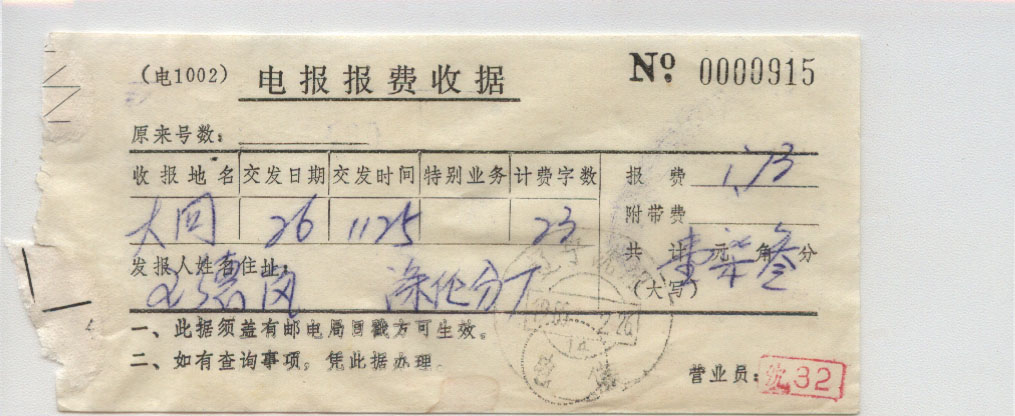 (电1002) 电报报费收据 № 0000915
原来号数:
收报地名 交发日期 交发时间 特别业务 计费字数 报 费 1.73
大同 26 1125 23 附带费
共 计 壹元柒角叁分
(大写)
发报人姓名住址:
涤纶分厂
一、此据须盖有邮电局日戳方可生效。
二、如有查询事项, 凭此据办理。
营业员: 沈32